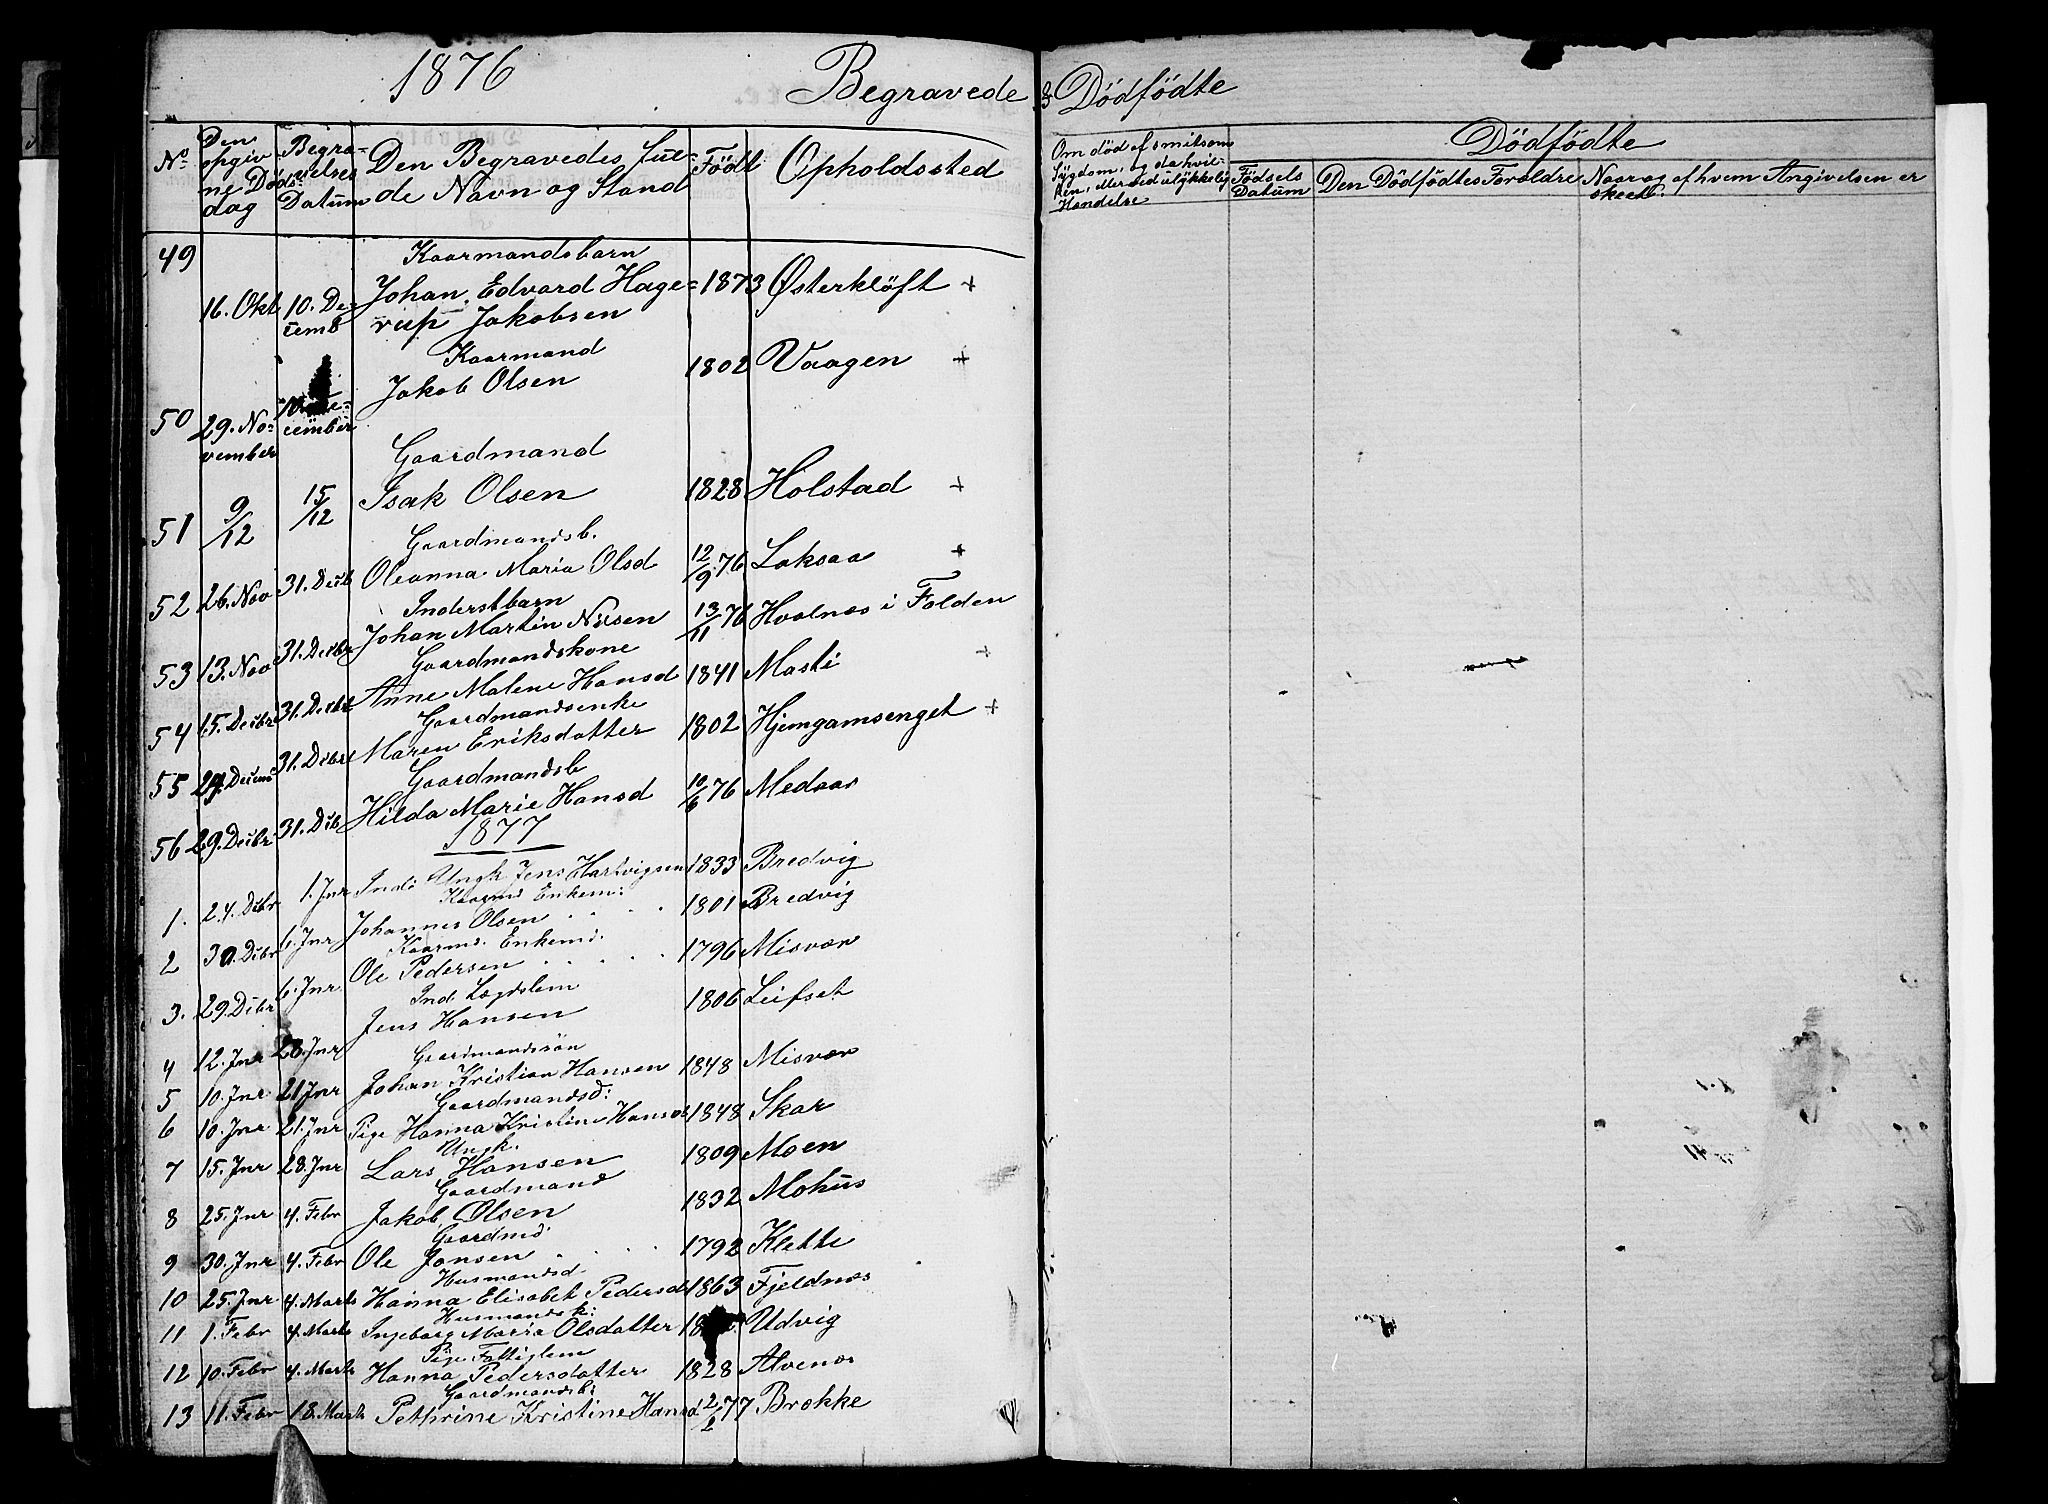 1876 Begravede & Dödfödte
No Den opgivne Dödsdag Begravelses Datum Den Begravedes fulde Navn og Stand Födt Opholdssted
Om död af smitsom Sygdom, og da hvilken, eller ved ulykkelig Hændelse
Dödfödte
Födsels Datum Den Dödfödtes Forældre Naar og af hvem Angivelsen er skeet.
49 Kaarmandsbarn
16. Okt 10. Decemb Johan Edvard Hagerup Jakobsen 1873 Østerklöft +
Kaarmand
50 29. November Jakob Olsen 1802 Vaagen +
Gaardmand
51 9/12 15/12 Isak Olsen 1828 Holstad +
Gaardmandsb.
52 26. Nov 31. Decb Oleanna Maria Olsd 12/9 76 Laksaa +
Inderstbarn
53 13. Nov 31. Decbr Johan Martin Nilsen 13/11 76 Hvalnæs i Folden
Gaardmandskone
54 15. Decbr 31. Decbr Anne Malene Hansd 1841 Mosti +
Gaardmandsenke
55 29. Decemb 31. Decbr Maren Eriksdatter 1802 Hjemgamsenget +
Gaardmandsb
56 29. Decbr 31. Dcb Hilda Marie Hansd 10/6 76 Medaas
1877
1. 24. Dcbr 1. Jnr Ind: Ungk Jens Hartvigsen 1833 Bredvig
Kaarmd Enkem:
2 30. Dcbr 6. Jnr Johannes Olsen 1801 Bredvig
Kaarmd. Enkemd.
3. 29. Dcbr 6. Jnr. Ole Pedersen 1796 Misvær
Ind. Lægdslem
4 12. Jnr 28. Jnr Jens Hansen 1806 Leifset
Gaardmandssön
5 10. Jnr 21 Jnr Johan Kristian Hansen 1848 Misvær
Gaardmandsd:
6 10. Jnr 21. Jnr Pige Hanna Kristine Hansd 1848 Skar
Ungk.
7 15. Jnr 28. Jnr Lars Hansen 1809 Moen
Gaardmand
8 25. Jnr 4. Febr Jakob Olsen 1832 Mohus
Gaardmd
9 30. Jnr 4. Febr Ole Jonsen 1792 Klette
Husmandsd.
10 25. Jnr 4. Marts Hanna Elisabet Pedersd 1863 Fjeldnæs
Husmandsk:
11 1. Febr 4. Marts Ingeborg Maria Olsdatter Udvig
Pige Fattiglem
12 10. Febr 4. Marts Hanna Pedersdatter 1828 Alvenæs
Gaardmandsb:
13 11. Febr 18. Marts Pethrine Kristine Hansd 2/2 77 Brekke